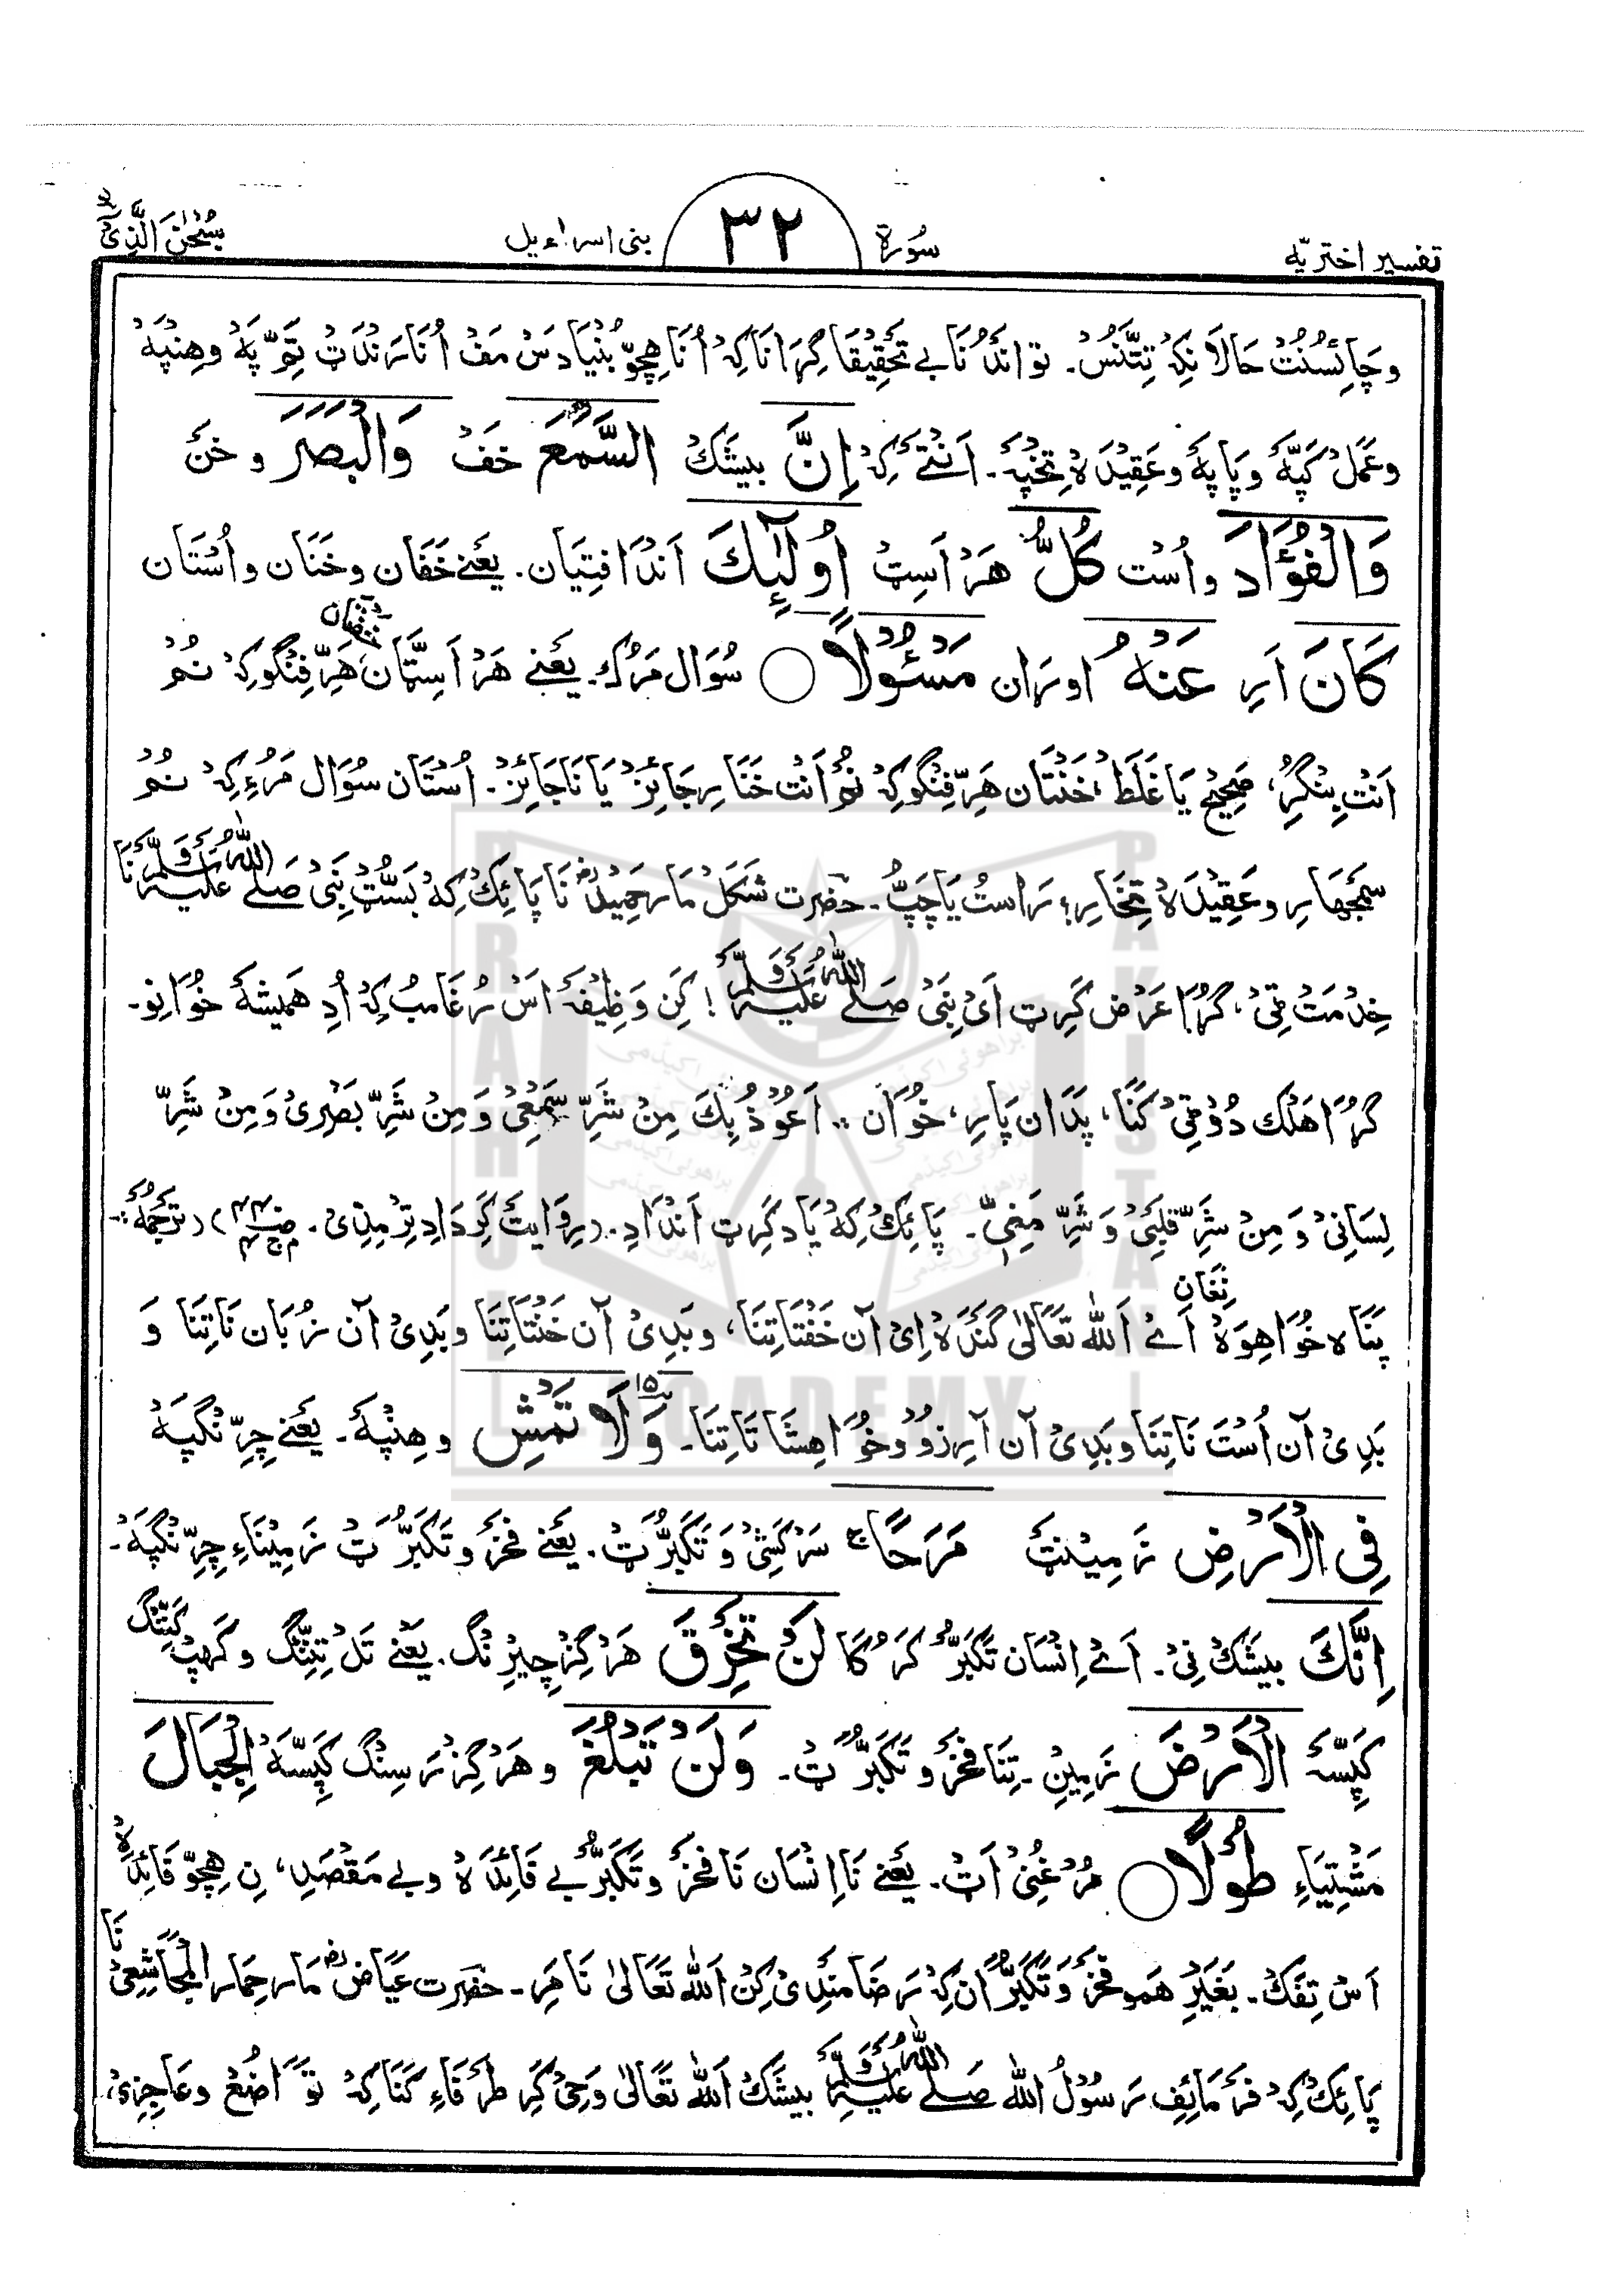 تفسیر اختریّه سُورة ۳۲ بنی اسراءیل سُبْحٰنَ الَّذِیْ
وچَائسُنُتْ حَالَانکِہْ تِتَّنُسْ۔ تو اندُنَا بے تَحْقِیْقَا گِرَانَا کِہْ اُنَا هِچّو بُنْیَادَسْ مَفْ اُنَا رَنْدَتْ تِمَّپَہْ وهِنْپَہْ
وعَمَلْ کَپَّہْ وپَاپَہْ وعَقِیْدَہ تِخْپَہْ۔ اَنْتَے کِہْ اِنَّ بیشَکْ السَّمْعَ خَفْ وَالْبَصَرَ و خَنْ
وَالْفُؤَادَ و اُسْت كُلُّ هَرْ اَسِٹْ اُولٰٓئِكَ اَنْدَافِتِیَان۔ یعنے خَفَان وخَنَان و اُسْتَان
كَانَ اَرِ عَنْهُ اوڑَان مَسْـُٔوْلًا ○ سُوَال مَرُک۔ یعنے هَرْ اَسِٹَّان خَفْتَان هَرّفِنْگو کِہْ نُمْ
اَنْتْ بِنْگرِ، صَحِیْح یَا غَلَطْ، خَنْتَان هَرّفِنْگو کِہْ نُمْ اَنْت خَنَارِ جَائز یَا نَاجَائز۔ اُسْتَان سُوَال مَرُءِ کِہْ نُمْ
سَمْجھَارِ وعَقِیْدَہ تِخَارِ؛ رَاسْتْ یَا چَپّْ۔ حضرت شَکَلْ مَار حَمِیْد نَا پَائکْ کِہْ بَسُّٹْ نَبِیْ صَلَے اللّٰهُ عَلَیْهِ وَسَلَّمَ نَا
خِدْمَتْ ٹِیْ، گُڑَا عَرْض کَرِٹ اَیْ نَبِیْ صَلَے اللّٰهُ عَلَیْهِ وَسَلَّمَ! کَنِ وَظِیْفَہْ اَسْ رُغَامبُ کِہْ اُدِ هَمِیْشَہْ خُوَانِو۔
گُڑَا هَلْک دُوْٹِیْ کَنَا، پَدَان پَارِ، خُوَان۔۔ اَعُوْذُ بِكَ مِنْ شَرِّ سَمْعِیْ وَ مِنْ شَرِّ بَصَرِیْ وَ مِنْ شَرِّ
لِسَانِیْ وَ مِنْ شَرِّ قَلْبِیْ وَ شَرِّ مَنِیِّیْ۔ پَائکْ کِہْ یَاد کَرِٹ اَنْدَادِ۔ (رِوَایَتْ کَرِ دَادِ تِرْمِذِیْ۔) (تَرْجُمَہْ:-
پَنَاہ خُوَاهِوَہ نَغَان اَے اَللّٰه تَعَالٰی گَنْدَہ اِیْ آن خَفْتَاتِنَا، وبَدِیْ آن خَنْتَاتِنَا وبَدِیْ آن زُبَان نَاتِنَا وَ
بَدِیْ آن اُسْتَ نَاتِنَا وبَدِیْ آن آرزُو دخُوَاهِشَاتَاتِنَا۔ وَلَا تَمْشِ وهِنْپَہْ۔ یعنے چِرِّنْگپَہْ
فِی الْاَرْضِ زَمِیْنٹْ مَرَحًا ج سَرْکَشِیْ وَ تَکَبُّرْٹ۔ یعنے فَخْرْ و تَکَبُّرْٹ زَمِیْنَاءِ چِرِّنْگپَہْ۔
اِنَّكَ بیشَکْ نِیْ۔ اَے اِنْسَان تَکَبُّرْ کَرُکَا لَنْ تَخْرِقَ هَرْگِز چِیْرِنْگ۔ یعنے تَلْ تِنِّنگ وکَهپْ کَنِّنگ
کَپِسَّہْ الْاَرْضَ زَمِیْنِ۔ تِنَا فَخْرُ و تَکَبُّرْٹ۔ وَلَنْ تَبْلُغَ وهَرْگِز رَسِنْگ کَپِسَّہْ الْجِبَالَ
مَشْتِیَاءِ طُوْلًا ○ مُرْغُنِیْ اَٹْ۔ یعنے نَا اِنْسَان نَا فَخْرُ و تَکَبُّرْ بے فَائدَہ وبے مَقْصَدِ، نِ هِچّو فَائدَہ
اَسْ تِفَکْ۔ بَغَیْرِ هَمو فَخْرُ و تَکَبُّرَان کِہْ رَضَامَنْدِیْ کِنْ اَللّٰه تَعَالٰی نَا مَرِ۔ حضرت عَیَاض مَار حِمَار الْمُجَاشِعِیْ نَا
پَائکْ کِہْ فَرْمَائِفِ رَسُوْلُ اللّٰه صَلَے اللّٰهُ عَلَیْهِ وَسَلَّمَ بیشَکْ اَللّٰه تَعَالٰی وَحِیْ کَرِ طَرْفَاءِ کَنَا کِہْ تَوَاضُعْ وعَاجِزِیْ،
BRAHUI ACADEMY PAKISTAN
براهوئی اکیڈمی